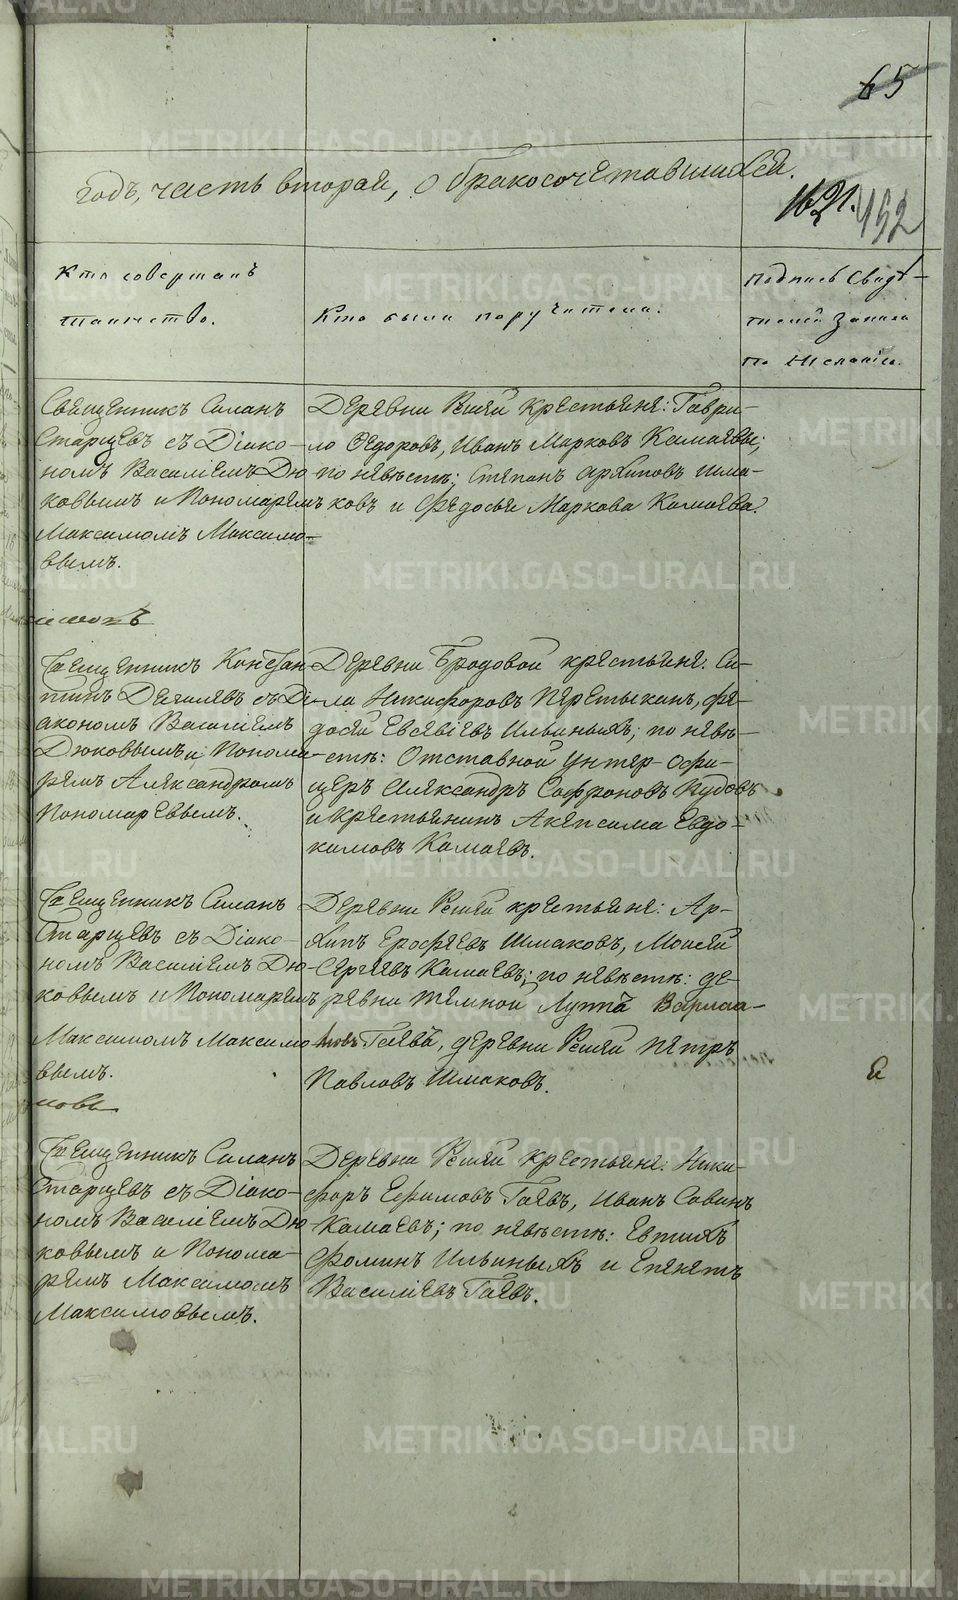 65
годъ, часть вторая, о бракосочетавшихся.
1621. 492
Кто совершалъ
таинство.
Кто были поручители.
Подпись Свидѣ-
телей записи
по желанію.
Священникъ Силанъ
Старцевъ съ Діако-
номъ Василіемъ Дю-
ковымъ и Пономаремъ
Максимомъ Максимо-
вымъ.
Деревни Решей крестьяне: Гаври-
ло Ѳедоровъ, Иванъ Марковъ Камаевы;
по невѣстѣ: Степанъ Архиповъ Шма-
ковъ и Федосья Маркова Камаева.
Священникъ Констан-
тинъ Дягилевъ съ Ді-
акономъ Василіемъ
Дюковымъ и Понома-
ремъ Александромъ
Пономаревымъ.
Деревни Бродовой крестьяне: Си-
ла Никифоровъ Перетыкинъ, Фе-
досей Евсевіевъ Ильиныхъ; по невѣ-
стѣ: Отставной Унтер-офи-
церъ Александръ Софроновъ Пудовъ
и крестьянинъ Акепсима Евдо-
кимовъ Камаевъ.
Священникъ Силанъ
Старцевъ съ Діако-
номъ Василіемъ Дю-
ковымъ и Пономаремъ
Максимомъ Максимо
вымъ.
Деревни Решей крестьяне: Ар-
хипъ Ерофеевъ Шмаковъ, Моисей
Сергѣевъ Камаевъ; по невѣстѣ: де-
ревни Темной Луппъ Варлаа-
мовъ Гаевъ, деревни Решей Петръ
Павловъ Шмаковъ.
Священникъ Силанъ
Старцевъ съ Діако-
номъ Василіемъ Дю
ковымъ и Понома-
ремъ Максимомъ
Максимовымъ.
Деревни Решей крестьяне: Ники-
форъ Ефимовъ Гаевъ, Иванъ Савинъ
Камаевъ; по невѣстѣ: Евтихъ
Фоминъ Ильиныхъ и Епенетъ
Василіевъ Гаевъ.
METRIKI.GASO-URAL.RU